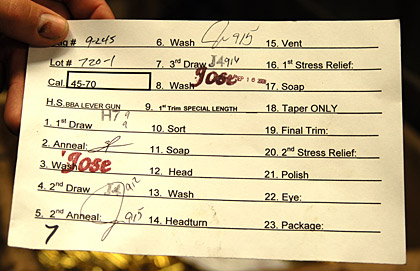 # 9-245 6. Wash 915 15. Vent
Lot # 720-1 7. 3rd Draw J4 914 16. 1st Stress Relief:
Cal. 45-70 8. Wash Jose SEP 16 17. Soap
H.S. BBA LEVER GUN 9. 1st Trim SPECIAL LENGTH 18. Taper ONLY
1. 1st Draw H7 10. Sort 19. Final Trim:
2. Anneal: 11. Soap 20. 2nd Stress Relief:
3. Wash Jose 12. Head 21. Polish
4. 2nd Draw 912 13. Wash 22. Eye:
5. 2nd Anneal: 915 14. Headturn 23. Package:
7